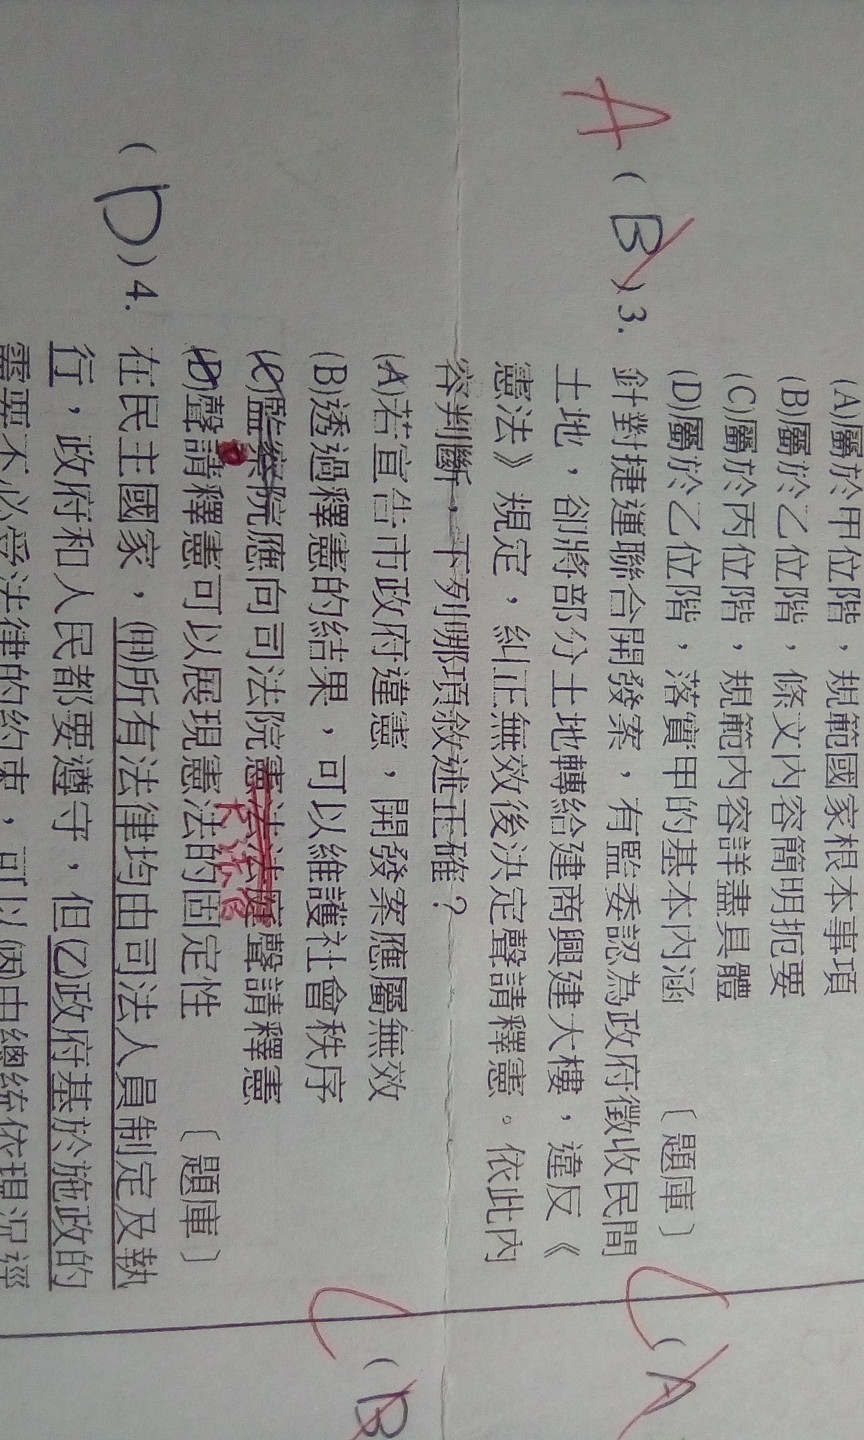 (A)屬於甲位階，規範國家根本事項
(B)屬於乙位階，條文內容簡明扼要
(C)屬於丙位階，規範內容詳盡具體
(D)屬於乙位階，落實甲的基本內涵 〔題庫〕
A (B)3. 針對捷運聯合開發案，有監委認為政府徵收民間
土地，卻將部分土地轉給建商興建大樓，違反《
憲法》規定，糾正無效後決定聲請釋憲。依此內
容判斷，下列哪項敘述正確？
(A)若宣告市政府違憲，開發案應屬無效
(B)透過釋憲的結果，可以維護社會秩序
(C)監察院應向司法院憲法法庭聲請釋憲
大法官
(D)聲請釋憲可以展現憲法的固定性 〔題庫〕
(D)4. 在民主國家，(甲)所有法律均由司法人員制定及執
行，政府和人民都要遵守，但(乙)政府基於施政的
需要不必受法律的約束，可以(丙)由總統依現況逕
C (A
C (B